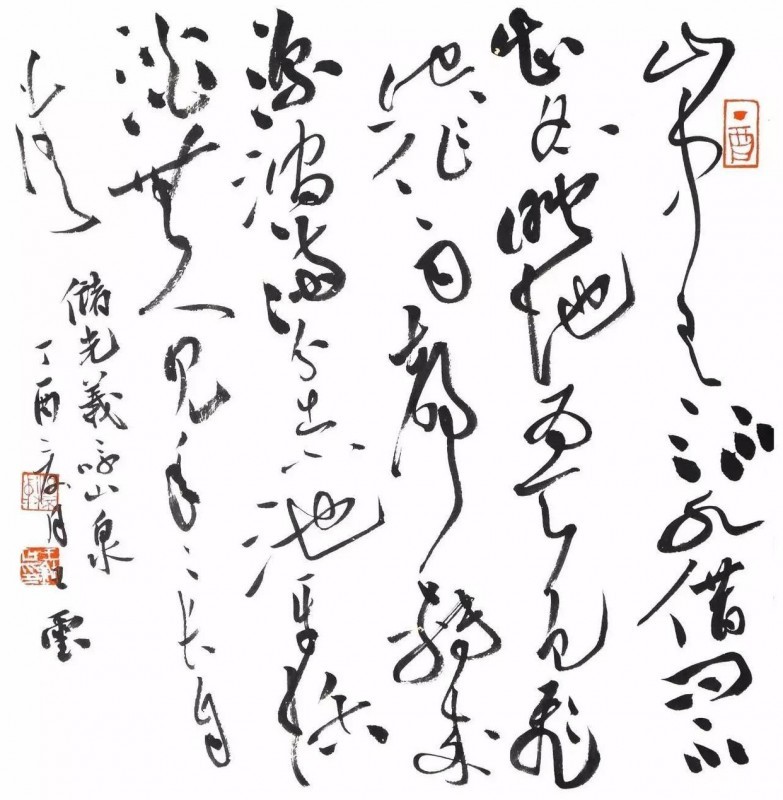 酉
山中有流水借問不
知名映地為天色飛
空作雨聲轉來
深澗滿分出小池平恬
澹無人見年〻長自
清
儲光義詠山泉
丁酉月雲